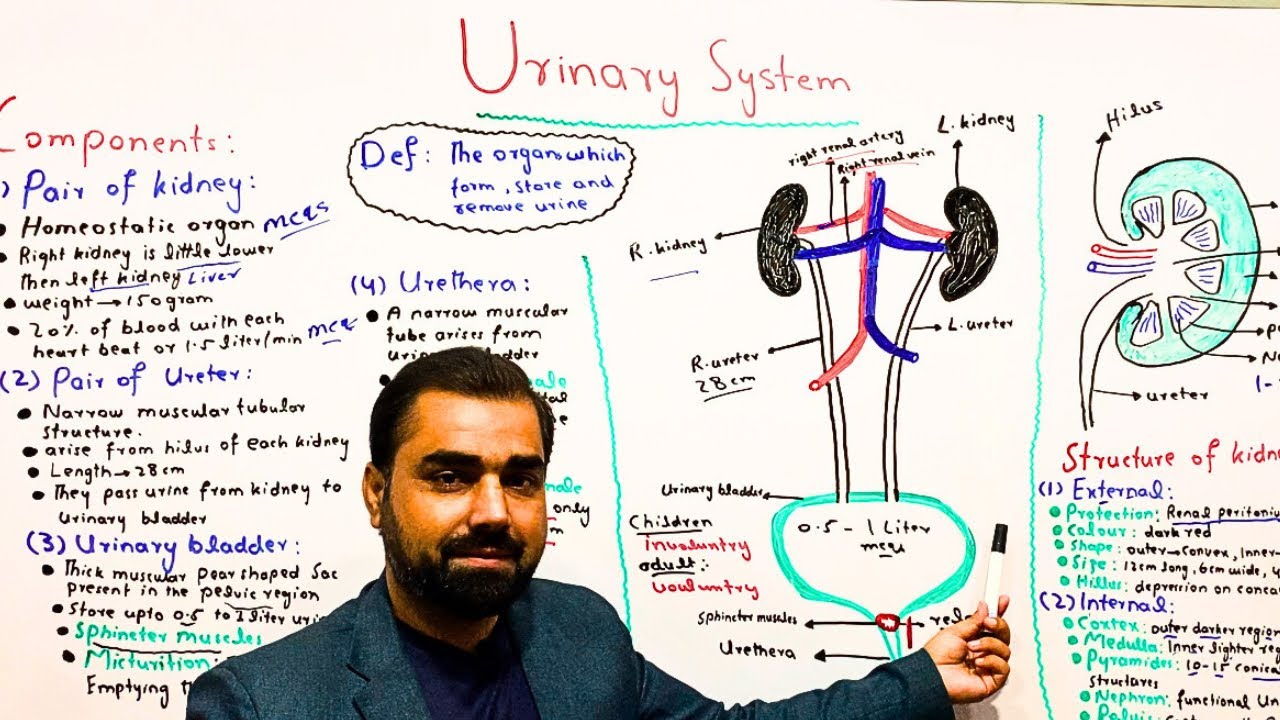 Urinary System
Components:
) Pair of kidney:
Homeostatic organ mcqs
Right kidney is little lower
then left kidney Liver
weight → 150 gram
20% of blood with each
heart beat or 1.5 liter/min mcq
(2) Pair of Ureter:
Narrow muscular tubular
structure.
arise from hilus of each kidney
Length → 28 cm
They pass urine from kidney to
Urinary bladder
(3) Urinary bladder:
Thick muscular pear shaped Sac
present in the pelvic region
Store upto 0.5 to 1 liter uri
Sphincter muscles
Micturition:
Emptying
Def: The organs which
form, store and
remove urine
(4) Urethera:
A narrow muscular
tube arises from
only
right renal artery
Right renal vein
L. kidney
R. kidney
L. ureter
R. ureter
28 cm
Urinary bladder
0.5 - 1 Liter
mcq
Children
involuntry
adult:
voluntry
Sphincter muscles
Urethera
Hilus
ureter
Structure of kidn
(1) External:
Protection: Renal peritoniu
Colour: dark red
Shape: outer → Convex, Inner
Size: 12cm long, 6cm wide, 4
Hillus: depression on conca
(2) Internal:
Cortex: outer darker region
Medulla: Inner lighter reg
Pyramides: 10-15 conical
structures
Nephron: functional Un
Pelvis: